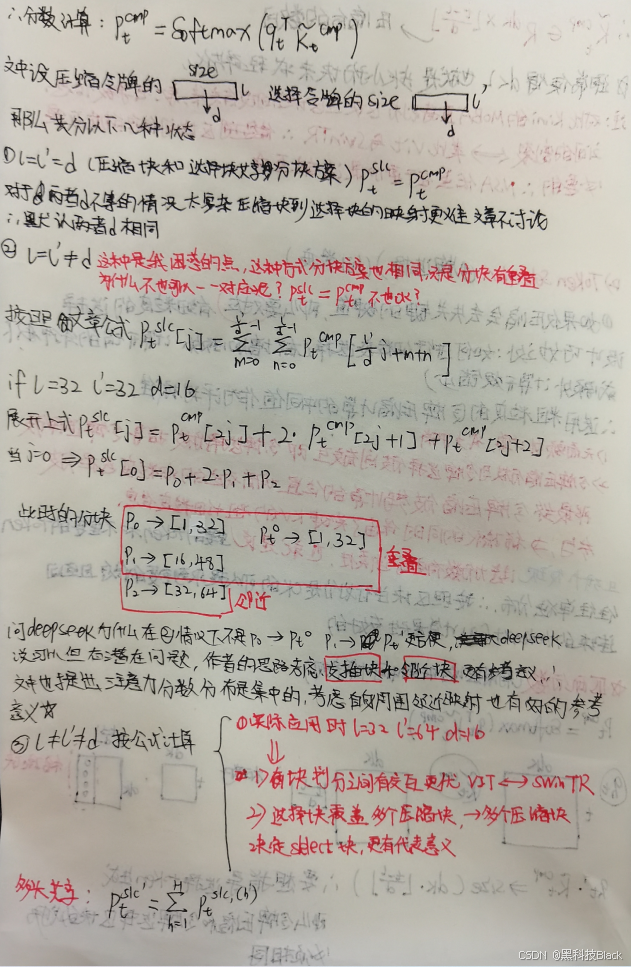 ∴分数计算: P_t^cmp = Softmax(q_t^T K̃_t^cmp)
文中设压缩令牌的 size l d 选择令牌的size l' d
那么共分以下几种状态
① l=l'=d (压缩块和选择块共享分块方案) P_t^slc = P_t^cmp
对于d两者不等的情况 太复杂压缩块到选择块的映射更难 文章不讨论
∴默认两者d相同
② l=l'≠d 这种是我困惑的点, 这种方式分块方案也相同,只是分块有重叠
为什么不也引入一一对应呢? P_t^slc = P_t^cmp 不也OK?
按照文章公式 P_t^slc[j] = Σ_{m=0}^{l'/d -1} Σ_{n=0}^{l/d -1} P_t^cmp[l'/d j+m+n]
if l=32 l'=32 d=16
展开上式 P_t^slc[j] = P_t^cmp[2j] + 2· P_t^cmp[2j+1] + P_t^cmp[2j+2]
当j=0 ⇒ P_t^slc[0] = P_0+2·P_1+P_2
此时的分块 P_0 → [1,32] P_t^0 → [1,32]
P_1 → [16,48] 重叠
P_2 → [32,64] 邻近
问deepseek为什么在②情况下不是 P_0 → P_t^0 P_1 → P_t^1 更方便, deepseek
说可以但存在潜在问题, 作者的思路考虑,
重叠块和邻近块 更有参考意义
文中也提出, 注意力分数分布是集中的, 考虑自身周围邻近映射也有好的参考
意义
③ l≠l'≠d 按公式计算
①实际应用时 l=32 l'=64 d=16
⇓
1) 每块划分之间有交互更优 ViT ↔ SwinTR
2) 选择块覆盖多个压缩块, → 多个压缩块
决定select块, 更有代表意义
多头共享: P_t^slc' = Σ_{h=1}^H P_t^slc,(h)
CSDN @黑科技Black